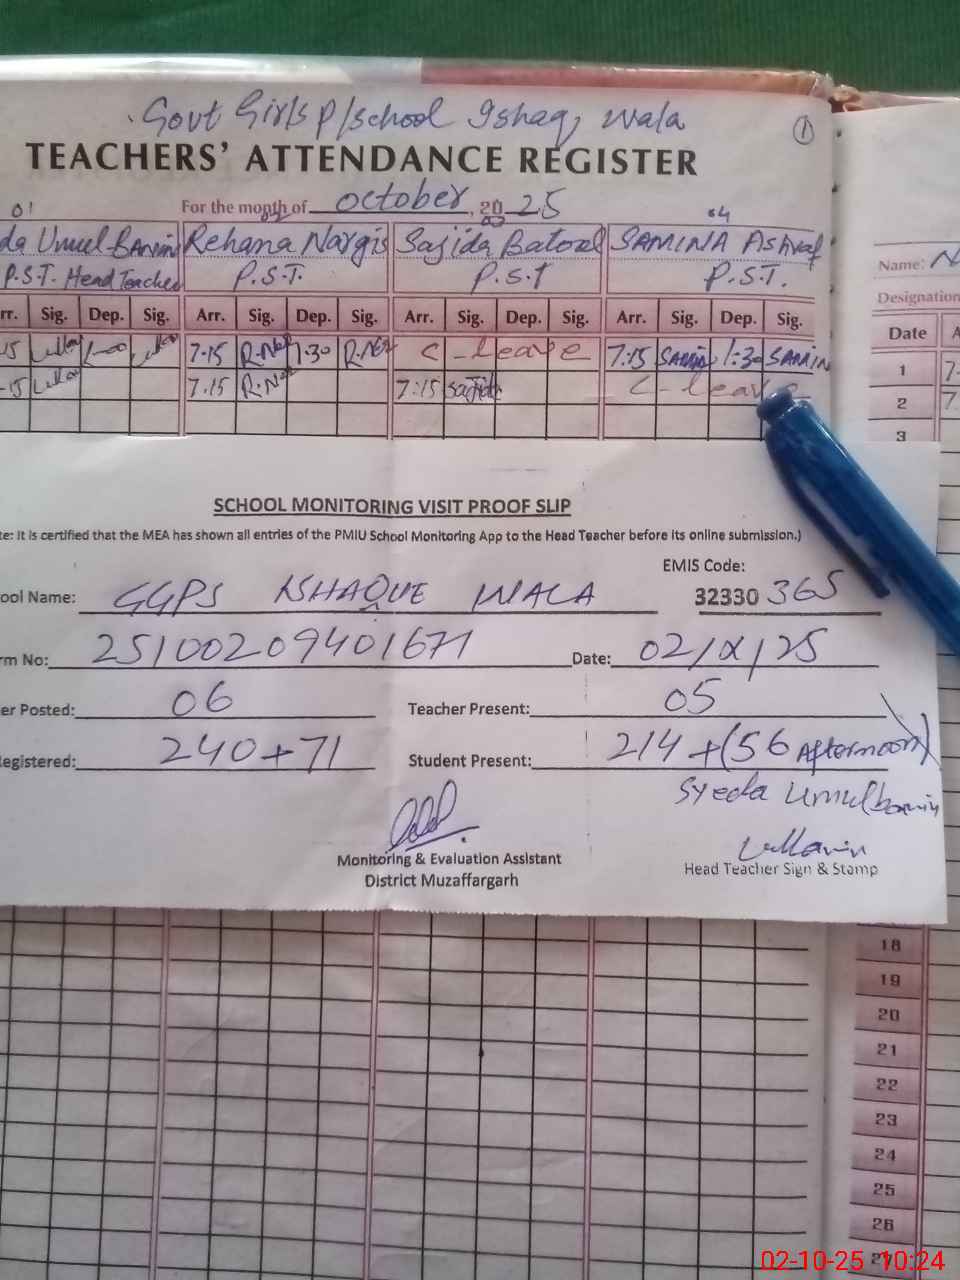 Govt Girls P/school Ishaq, wala
1
TEACHERS' ATTENDANCE REGISTER
01
For the month of October, 20 25
04
da Umul Banin Rehana Nargis Sajida Batool SAMINA Ashraf
P.S.T. Head Teacher P.S.T. P.S.T P.S.T.
rr. Sig. Dep. Sig. Arr. Sig. Dep. Sig. Arr. Sig. Dep. Sig. Arr. Sig. Dep. Sig.
15 7.15 R.Nar 1.30 R.Nar C-leave 7:15 SAMIN 1:30 SAMIN
-15 7.15 R.Nar 7:15 Sajida C-leave
Name: N
Designation
Date A
1 7.
2 7.
3
SCHOOL MONITORING VISIT PROOF SLIP
te: It is certified that the MEA has shown all entries of the PMIU School Monitoring App to the Head Teacher before its online submission.)
EMIS Code:
ool Name: GGPS ISHAQUE WALA 32330 365
rm No: 25100209401671 Date: 02/X/25
er Posted: 06 Teacher Present: 05
egistered: 240+71 Student Present: 214+(56 Afternoon)
Syeda Umulbanin
Monitoring & Evaluation Assistant
District Muzaffargarh
Head Teacher Sign & Stamp
18
19
20
21
22
23
24
25
26
27
02-10-25 10:24